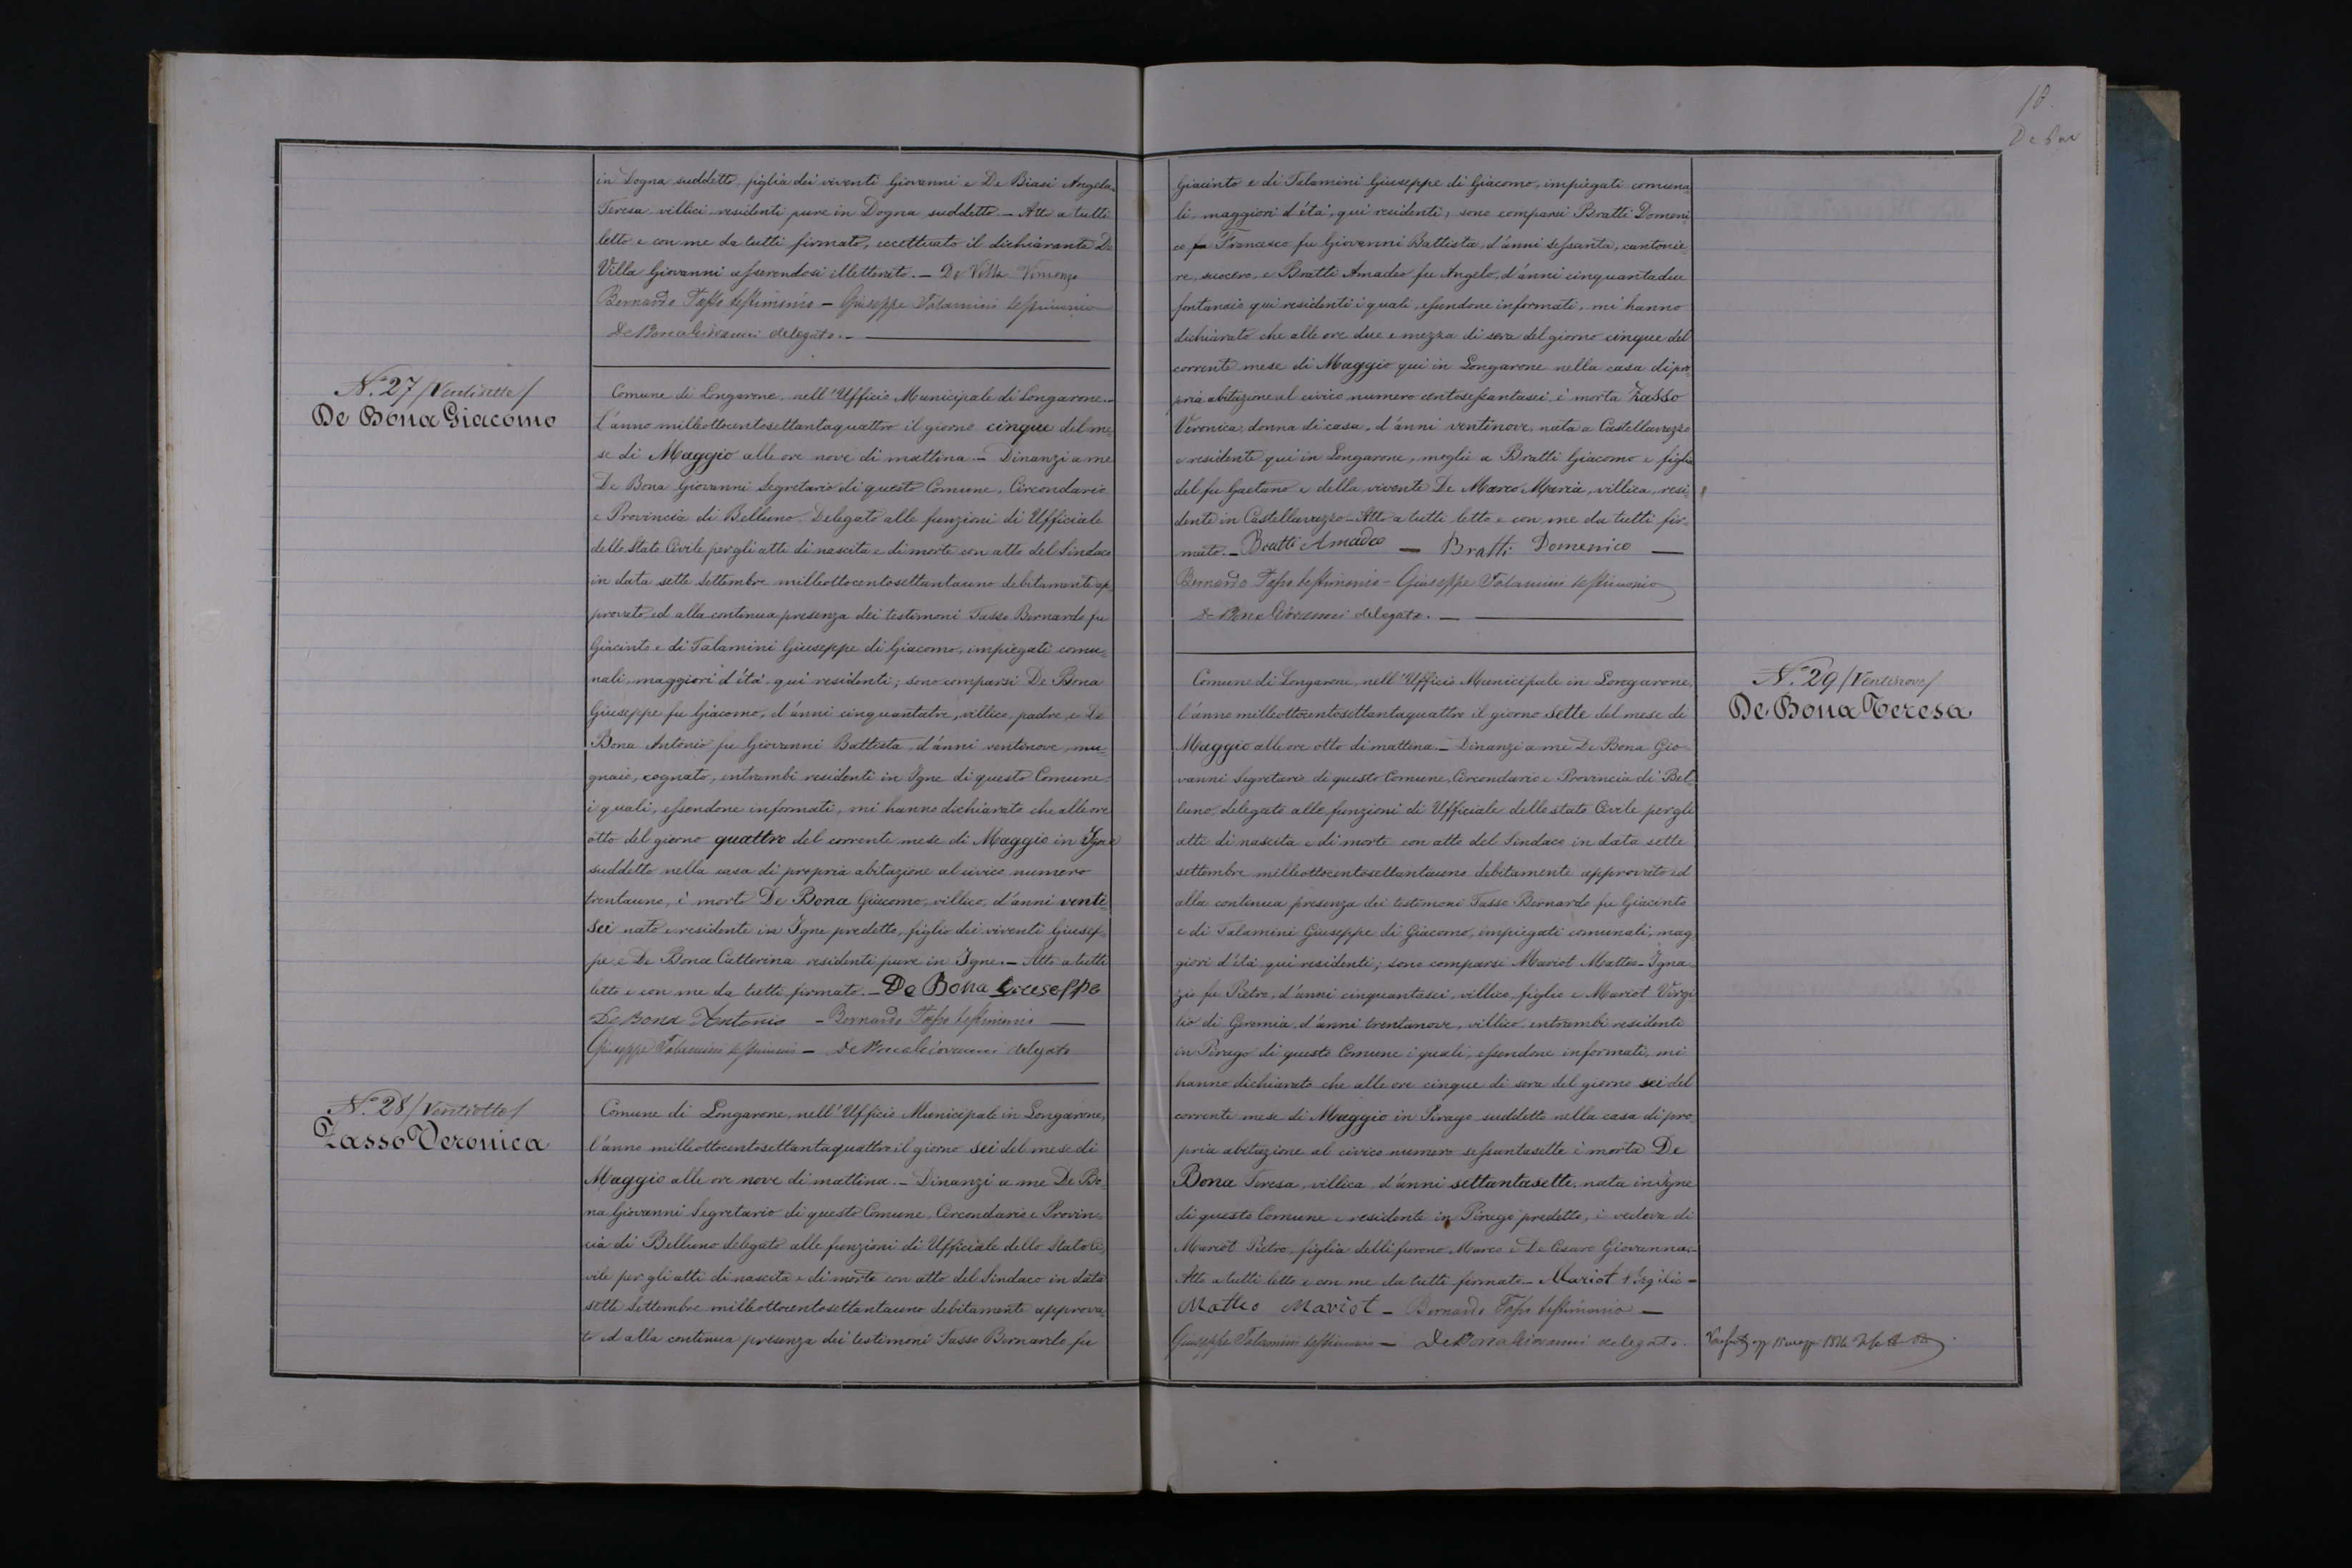 18.
in Dogna suddetto, figlia dei viventi Giovanni e De Biasi Angela-
Teresa, villici, residenti pure in Dogna suddetto. - Atto a tutti
letto e con me da tutti firmato, eccettuato il dichiarante De
Villa Giovanni asserendosi illetterato. - De Villa Vincenzo
Bernardo Tasso testimonio - Giuseppe Talamini testimonio
De Bona Giovanni delegato. -
N.° 27 / Ventisette /
De Bona Giacomo
Comune di Longarone, nell'Ufficio Municipale di Longarone. -
l'anno milleottocentosettantaquattro il giorno cinque del me-
se di Maggio alle ore nove di mattina. - Dinanzi a me
De Bona Giovanni Segretario di questo Comune, Circondario
e Provincia di Belluno. Delegato alle funzioni di Ufficiale
dello Stato Civile per gli atti di nascita e di morte con atto del Sindaco
in data sette Settembre milleottocentosettantauno debitamente ap-
provato ed alla continua presenza dei testimoni Tasso Bernardo fu
Giacinto e di Talamini Giuseppe di Giacomo, impiegati comu-
nali, maggiori d'età, qui residenti; sono comparsi De Bona
Giuseppe fu Giacomo, d'anni cinquantatre, villico, padre, e De
Bona Antonio fu Giovanni Battista, d'anni ventinove, mu-
gnaio, cognato, entrambi residenti in Igne di questo Comune,
i quali, essendone informati, mi hanno dichiarato che alle ore
otto del giorno quattro del corrente mese di Maggio in Igne
suddetto nella casa di propria abitazione al civico numero
trentauno, è morto De Bona Giacomo, villico, d'anni venti-
sei nato e residente in Igne predetto, figlio dei viventi Giusep-
pe e De Bona Catterina residenti pure in Igne. - Atto a tutti
letto e con me da tutti firmato. - De Bona Giuseppe
De Bona Antonio - Bernardo Tasso testimonio -
Giuseppe Talamini testimonio - De Bona Giovanni delegato
N.° 28 / Ventiotto /
Tasso Veronica
Comune di Longarone, nell'Ufficio Municipale in Longarone,
l'anno milleottocentosettantaquattro il giorno sei del mese di
Maggio alle ore nove di mattina. - Dinanzi a me De Bo-
na Giovanni Segretario di questo Comune, Circondario e Provin-
cia di Belluno delegato alle funzioni di Ufficiale dello Stato Ci-
vile per gli atti di nascita e di morte con atto del Sindaco in data
sette Settembre milleottocentosettantauno debitamente approva-
to ed alla continua presenza dei testimoni Tasso Bernardo fu
Giacinto e di Talamini Giuseppe di Giacomo, impiegati comuna-
li, maggiori d'età, qui residenti; sono comparsi Bratti Domeni-
co fu Francesco fu Giovanni Battista, d'anni sessanta, cantonie-
re, suocero, e Bratti Amadeo fu Angelo, d'anni cinquantadue
fontanaio qui residenti i quali, essendone informati, mi hanno
dichiarato che alle ore due e mezza di sera del giorno cinque del
corrente mese di Maggio qui in Longarone nella casa di pro-
pria abitazione al civico numero centosessantasei è morta Tasso
Veronica, donna di casa, d'anni ventinove, nata a Castellavazzo
e residente qui in Longarone, moglie a Bratti Giacomo e figlia
del fu Gaetano e della vivente De Marco Maria, villica, resi-
dente in Castellavazzo - Atto a tutti letto e con me da tutti fir-
mato. - Bratti Amadeo - Bratti Domenico -
Bernardo Tasso testimonio - Giuseppe Talamini testimonio
De Bona Giovanni delegato. -
N.° 29 / Ventinove /
De Bona Teresa
Comune di Longarone, nell'Ufficio Municipale in Longarone,
l'anno milleottocentosettantaquattro il giorno sette del mese di
Maggio alle ore otto di mattina. - Dinanzi a me De Bona Gio-
vanni Segretario di questo Comune, Circondario e Provincia di Bel-
luno, delegato alle funzioni di Ufficiale dello stato Civile per gli
atti di nascita e di morte con atto del Sindaco in data sette
settembre milleottocentosettantauno debitamente approvato ed
alla continua presenza dei testimoni Tasso Bernardo fu Giacinto
e di Talamini Giuseppe di Giacomo, impiegati comunali, mag-
giori d'età qui residenti; sono comparsi Mariot Matteo-Igna-
zio fu Pietro, d'anni cinquantasei, villico, figlio e Mariot Virgi-
lio di Geremia, d'anni trentanove, villico, entrambi residenti
in Pirago di questo Comune i quali, essendone informati, mi
hanno dichiarato che alle ore cinque di sera del giorno sei del
corrente mese di Maggio in Pirago suddetto nella casa di pro-
pria abitazione al civico numero sessantasette è morta De
Bona Teresa, villica, d'anni settantasette, nata in Igne
di questo Comune e residente in Pirago predetto, è vedova di
Mariot Pietro, figlia delli furono Marco e De Cesaro Giovanna. -
Atto a tutti letto e con me da tutti firmato - Mariot Virgilio -
Matteo Mariot - Bernardo Tasso testimonio -
Giuseppe Talamini testimonio - De Bona Giovanni delegato.